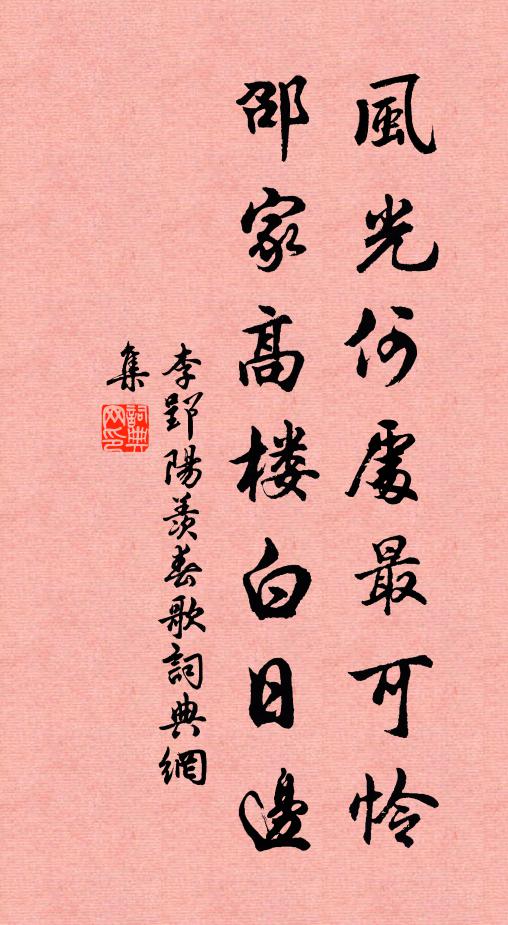 風光何處最可怜
邵家高楼白日邊
李郢陽羨春歌詞典網
集
詞典网印